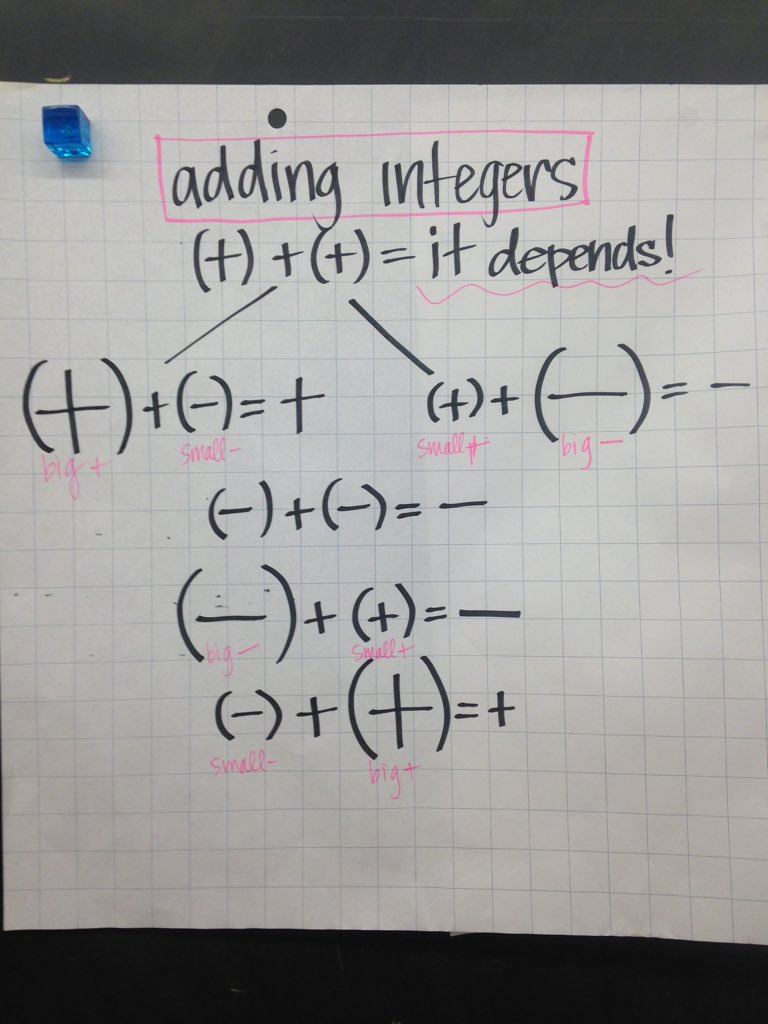 adding integers
(+) + (+) = it depends!
(+) + (-) = + (+) + (—) = —
big + small - small + big —
(-) + (-) = —
(—) + (+) = —
big — small +
(-) + (+) = +
small - big +